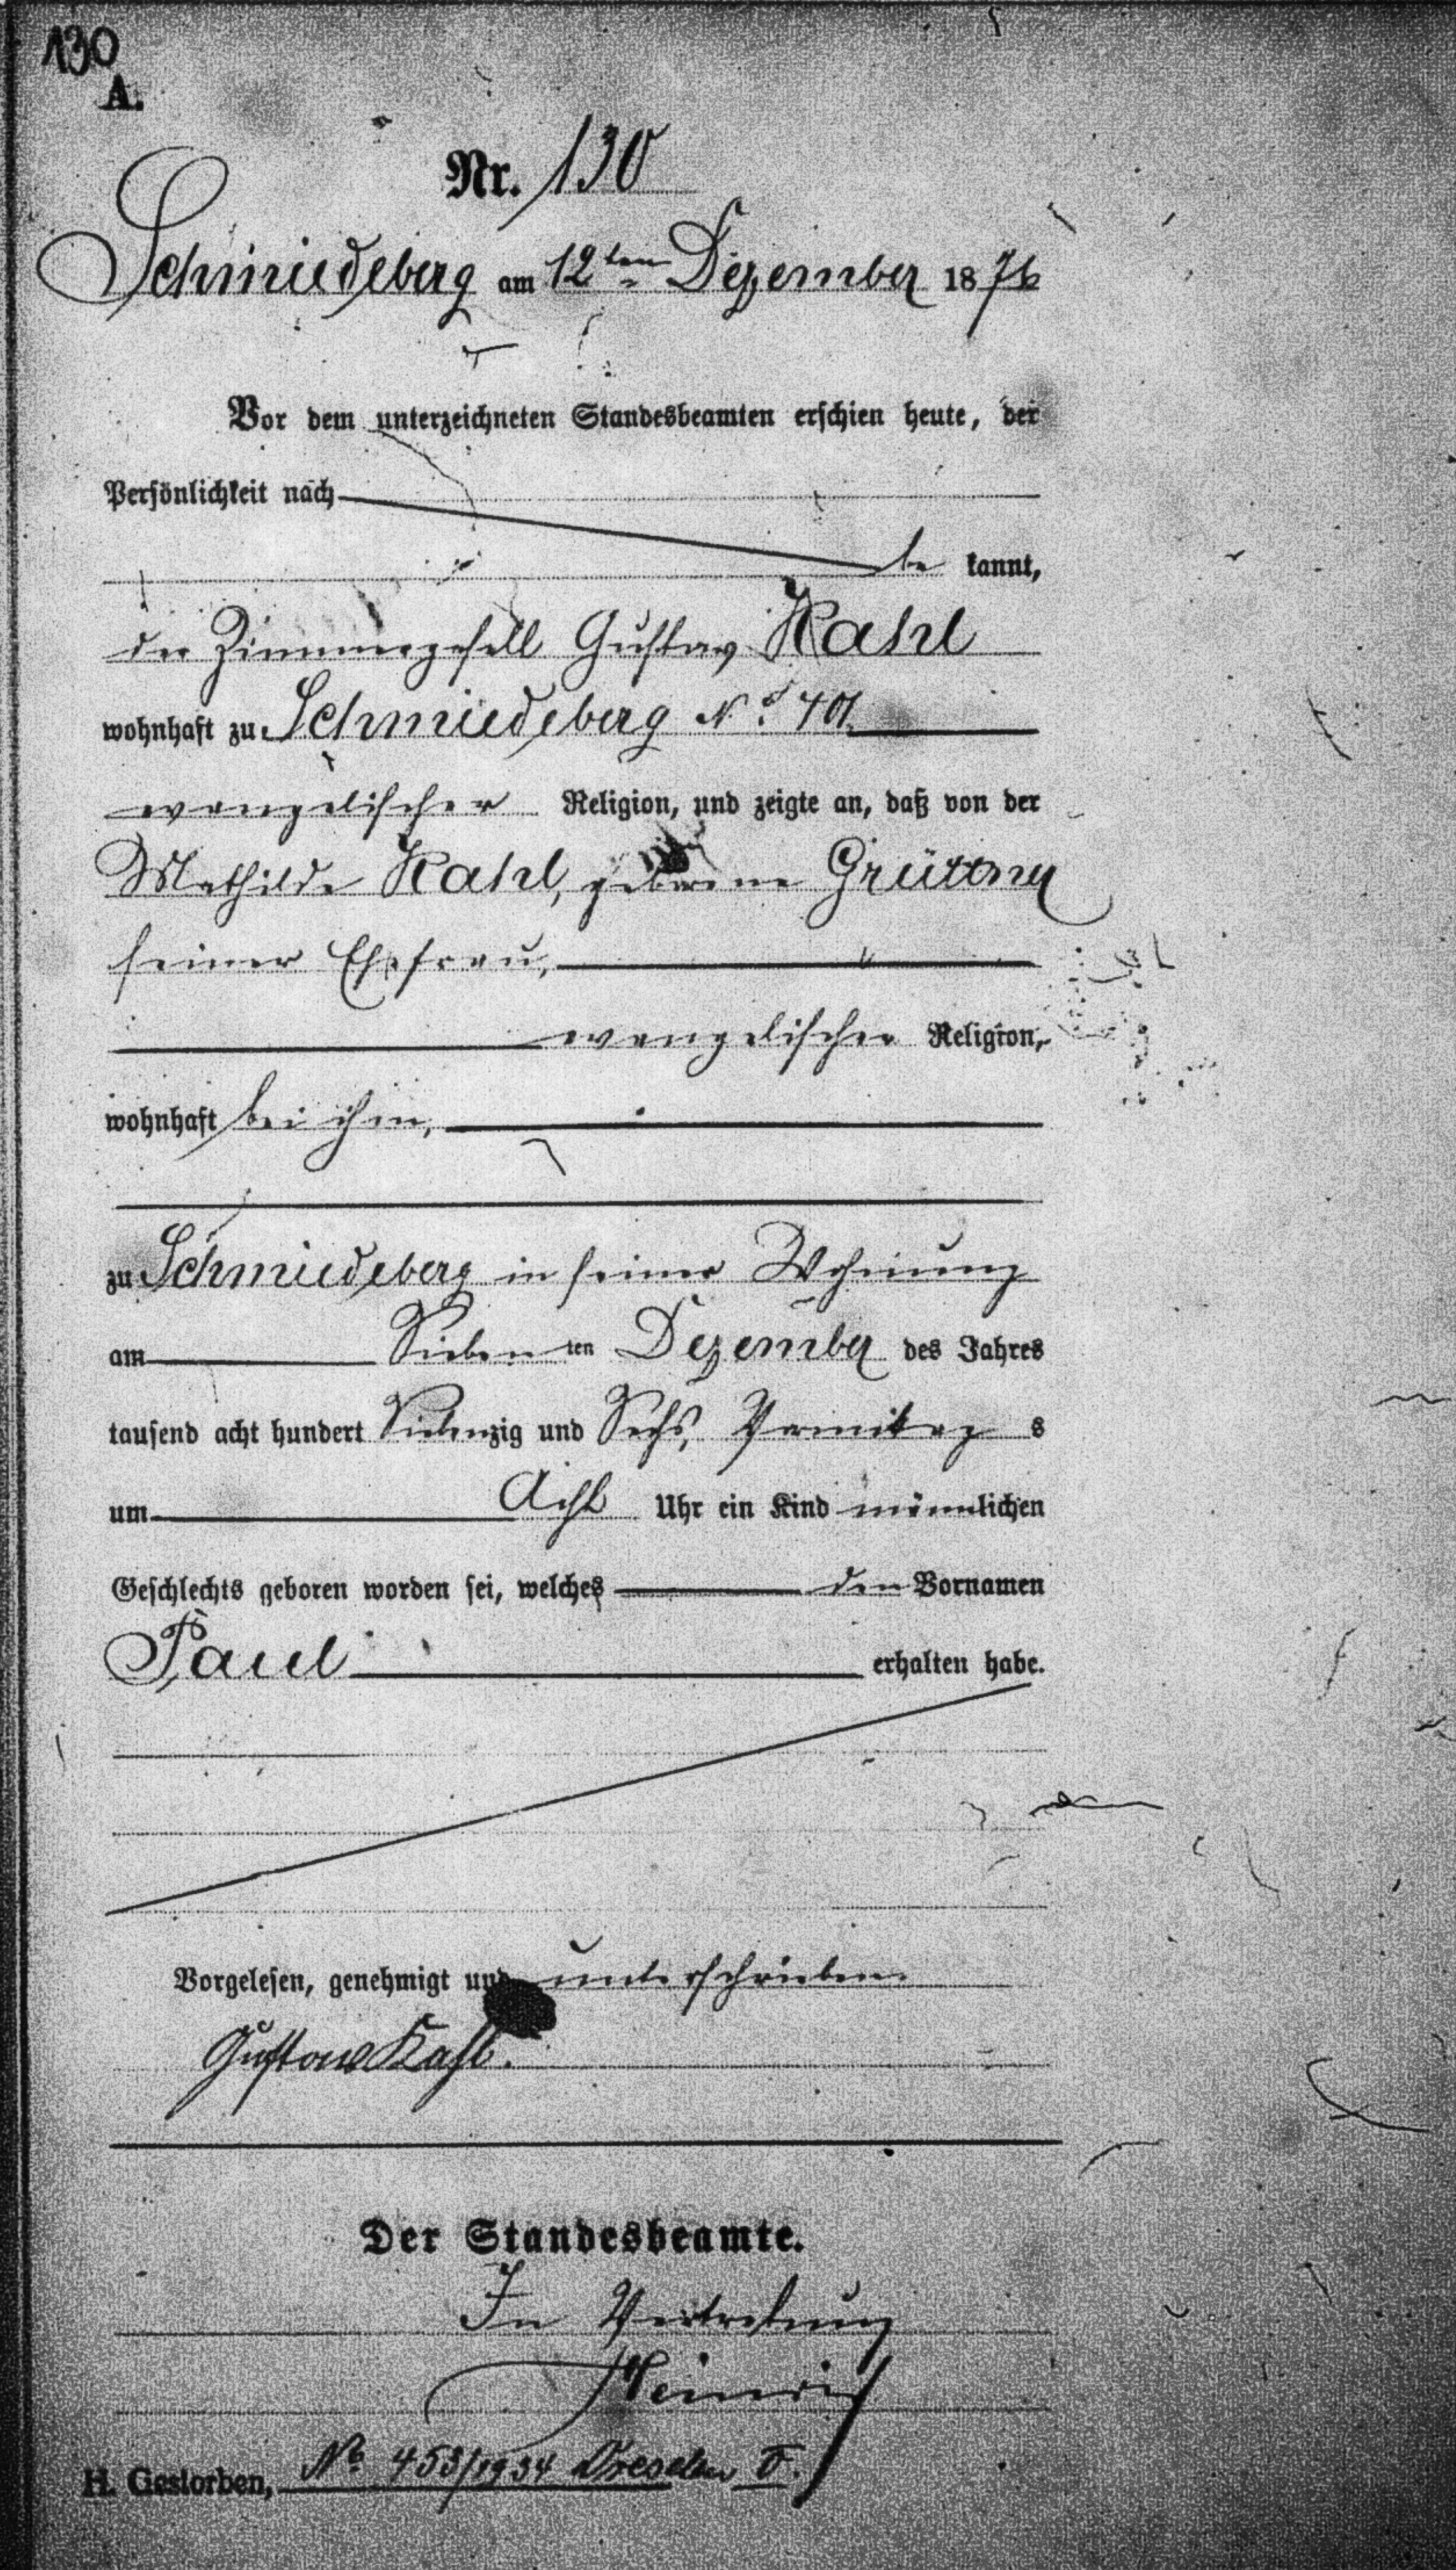 130
A.
Nr. 130
Schmiedeberg am 12ten Dezember 1876
Vor dem unterzeichneten Standesbeamten erschien heute, der
Persönlichkeit nach
be kannt,
der Zimmergesell Gustav Kahl
wohnhaft zu Schmiedeberg No 401
evangelischer Religion, und zeigte an, daß von der
Mathilde Kahl, geborene Grüttner
seiner Ehefrau,
evangelischer Religion,
wohnhaft bei ihm,
zu Schmiedeberg in seiner Wohnung
am Sieben ten Dezember des Jahres
tausend acht hundert Siebenzig und Sechs, Vormittag s
um Acht Uhr ein Kind männlichen
Geschlechts geboren worden sei, welches den Vornamen
Paul erhalten habe.
Vorgelesen, genehmigt und unterschrieben
Gustav Kahl.
Der Standesbeamte.
In Vertretung
H. Gestorben, No 453/1934 Dresden V.